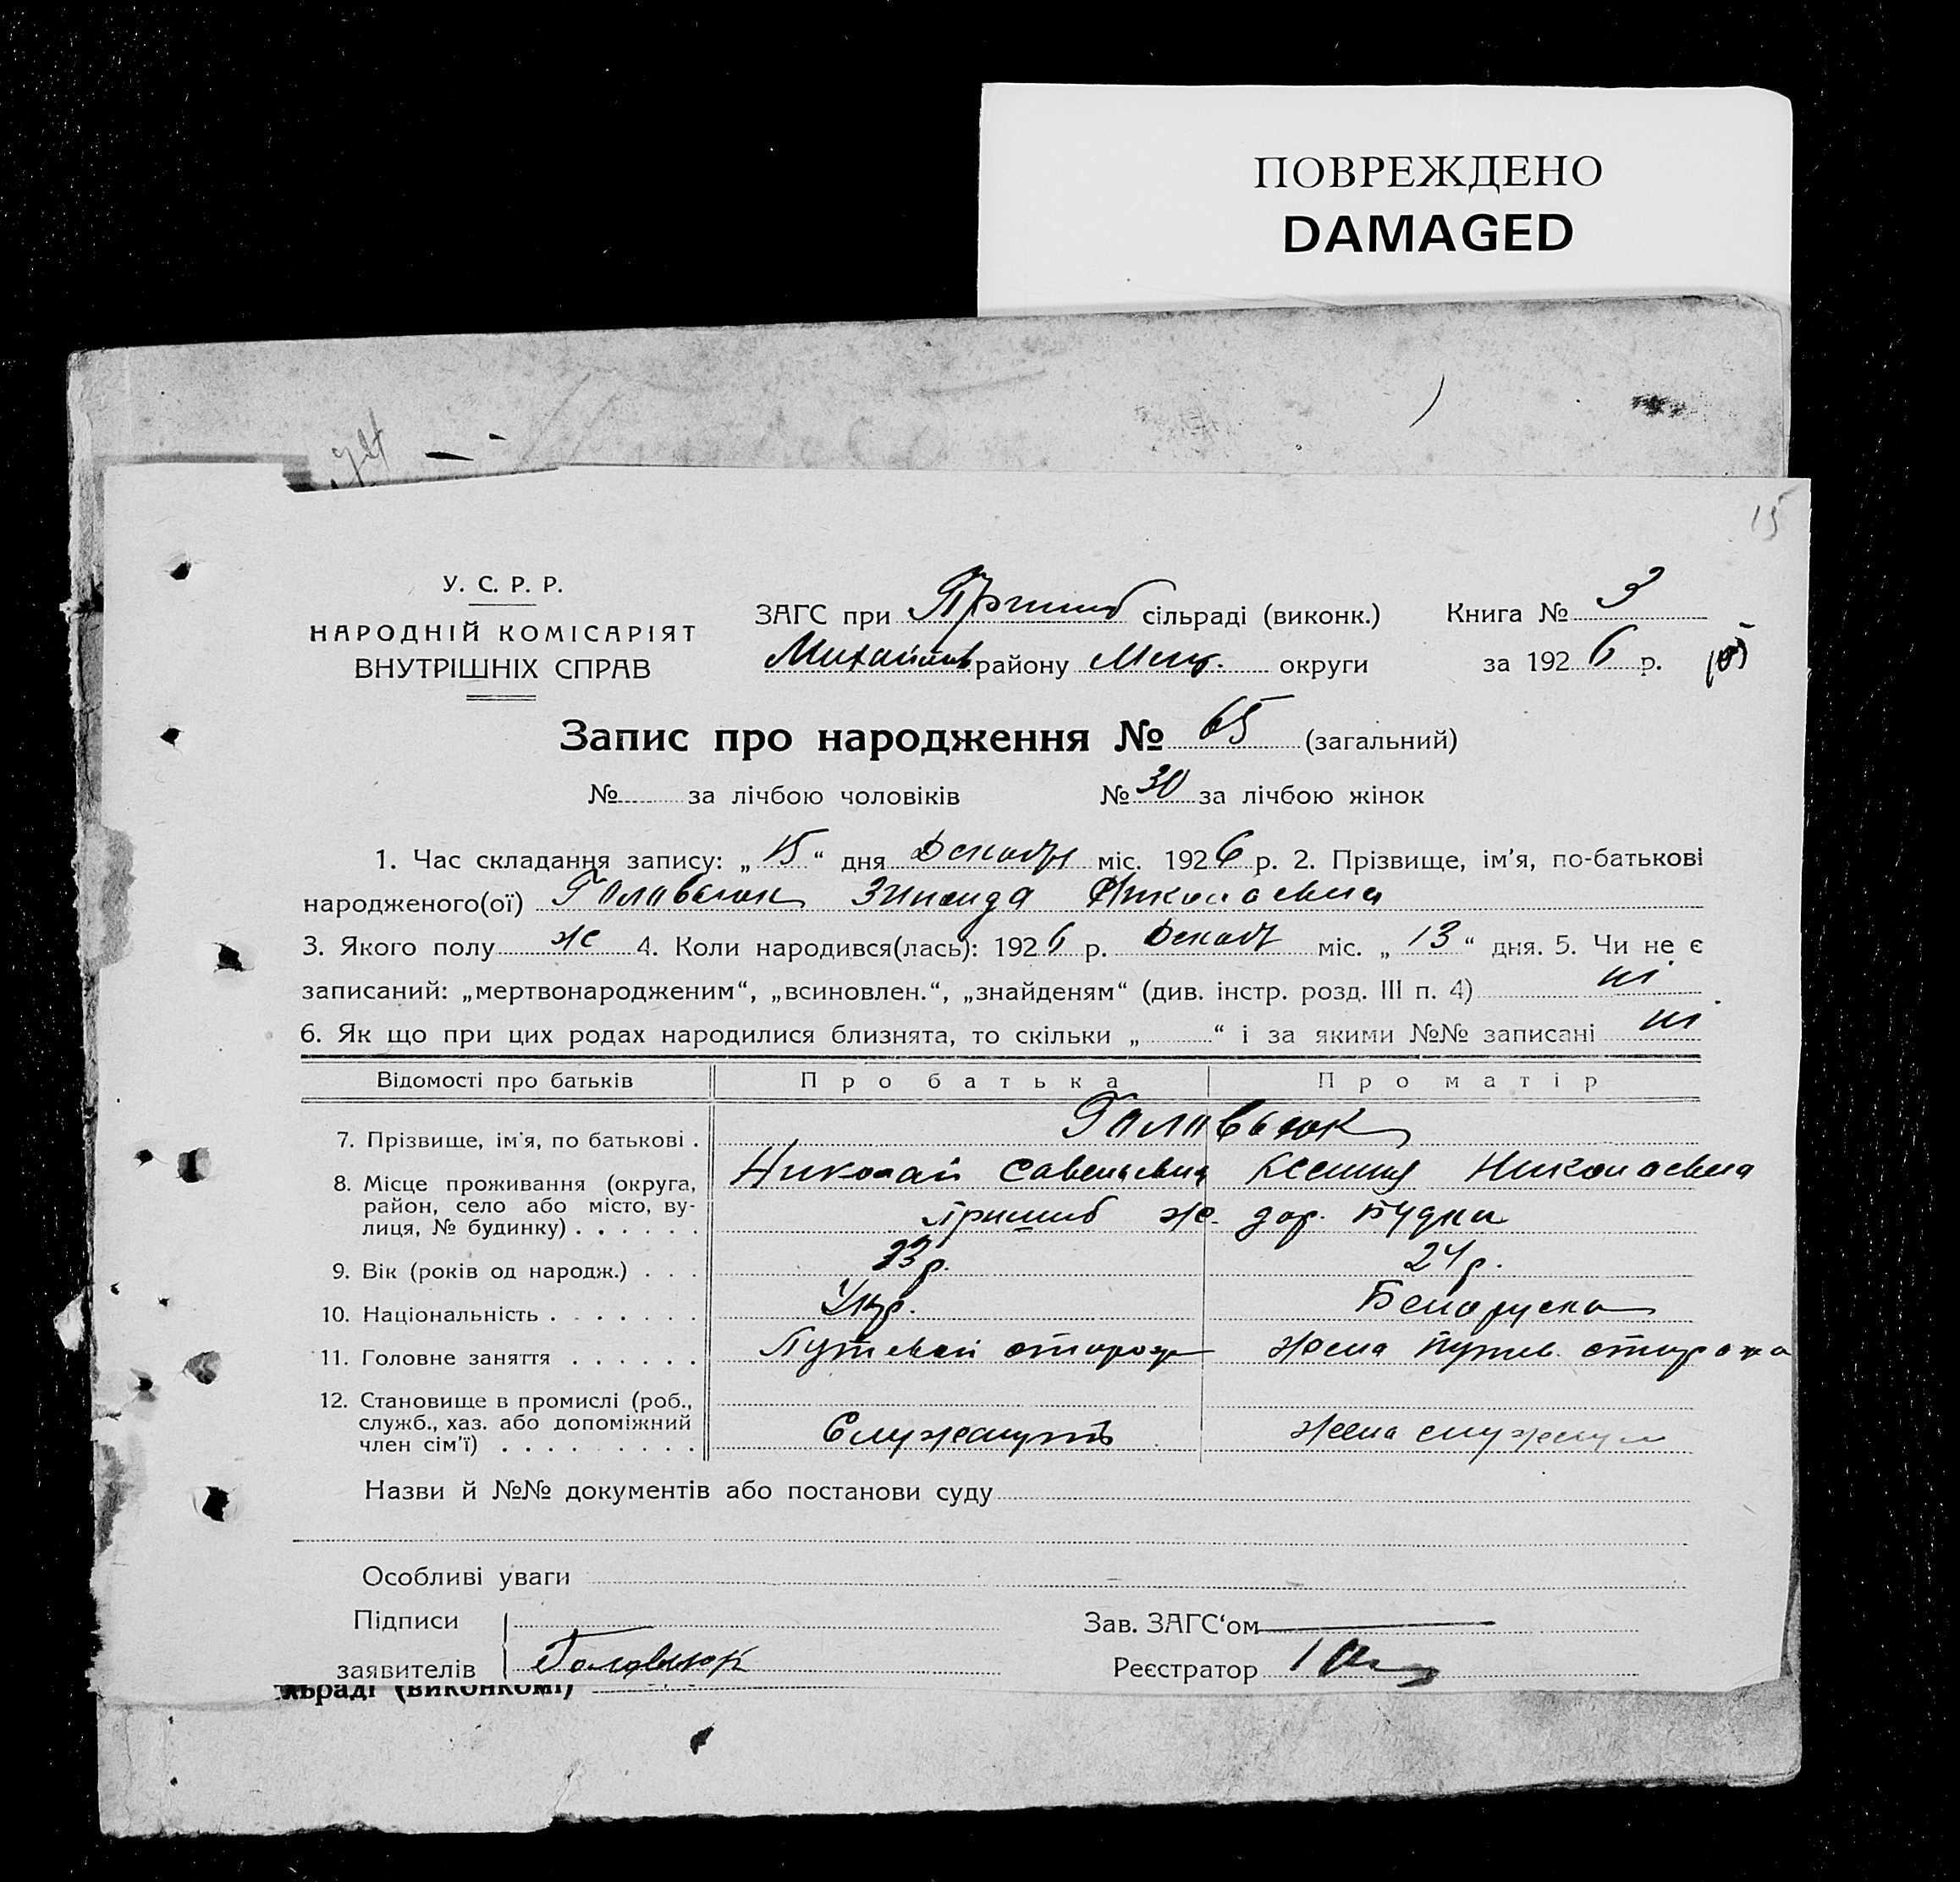 ПОВРЕЖДЕНО
DAMAGED
15
У. С. Р. Р.
НАРОДНІЙ КОМІСАРІЯТ
ВНУТРІШНІХ СПРАВ
ЗАГС при Пришиб сільраді (виконк.) Книга № 3
Михайлов району Мел. округи за 1926 р.
Запис про народження № 65 (загальний)
№ за лічбою чоловіків № 30 за лічбою жінок
1. Час складання запису: „15“ дня Декабря міс. 1926 р. 2. Прізвище, ім'я, по-батькові
народженого(ої) Галавьюк Зинаида Николаевна
3. Якого полу ж 4. Коли народився(лась): 1926 р. Декабр міс. „13“ дня. 5. Чи не є
записаний: „мертвонародженим“, „всиновлен.“, „знайденям“ (див. інстр. розд. III п. 4) ні
6. Як що при цих родах народилися близнята, то скільки „ “ і за якими №№ записані ні
Відомості про батьків Про батька Про матір
7. Прізвище, ім'я, по батькові . Галавьюк
8. Місце проживання (округа, Николай Савельевич Ксения Николаевна
район, село або місто, ву-
лиця, № будинку) . . . . . . Пришиб ж. дор. Будка
9. Вік (років од народж.) . . . 33 р. 24 р.
10. Національність . . . . . . . Укр. Белоруска
11. Головне заняття . . . . . . Путевой сторож Жена путев. сторожа
12. Становище в промислі (роб.,
служб., хаз. або допоміжний
член сім'ї) . . . . . . . . . Служащий жена служащ
Назви й №№ документів або постанови суду
Особливі уваги
Підписи Зав. ЗАГС‘ом
заявителів Голавьюк Реєстратор
льраді (виконкомі)